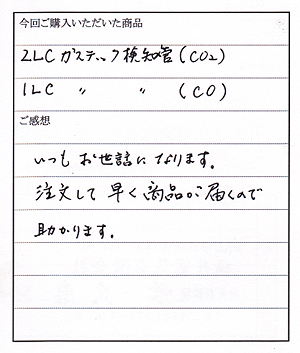 今回ご購入いただいた商品
2LC ガステック検知管(CO₂)
1LC 〃 〃 (CO)
ご感想
いつもお世話になります。
注文して早く商品が届くので
助かります。